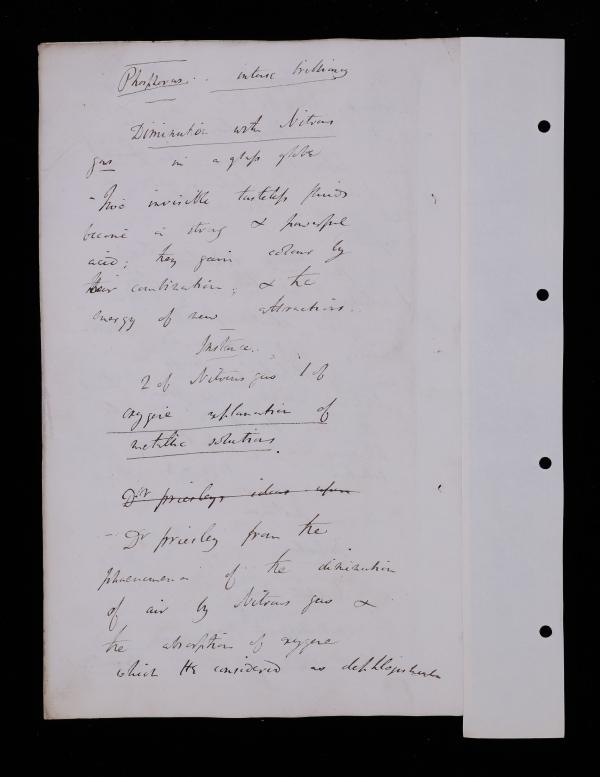 Phosphorus. . intense brilliancy
Diminution with Nitrous
gas in a glass globe
- Two invisible tasteless fluids
become a strong & powerful
acid; they gain colour by
their combination; & the
energy of new attractions.
Instance.
2 of Nitrous gas 1 of
oxygene explanation of
metallic solutions.
Dr priesleys ideas upon
- Dr priesley from the
phaenomena of the diminution
of air by Nitrous gas &
the absorption of oxygene
which He considered as